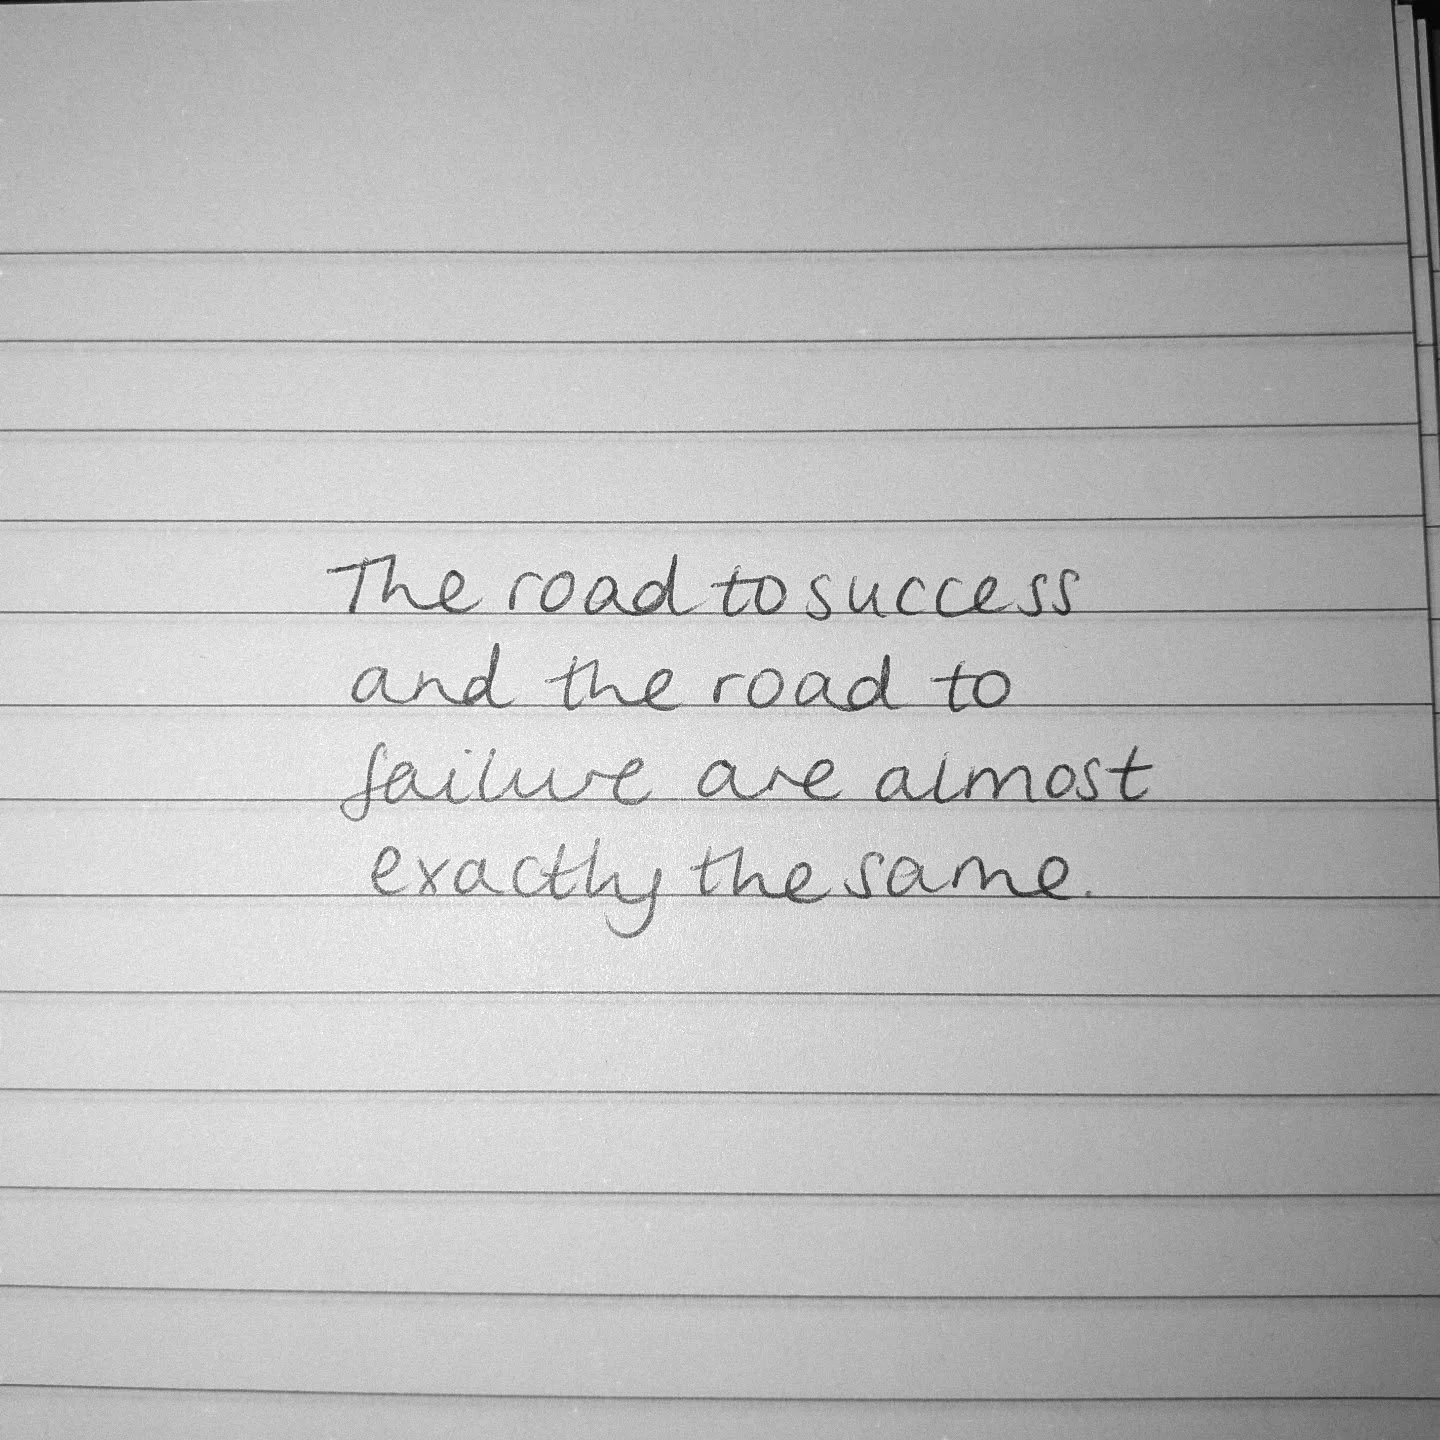 The road to success
and the road to
failure are almost
exactly the same.